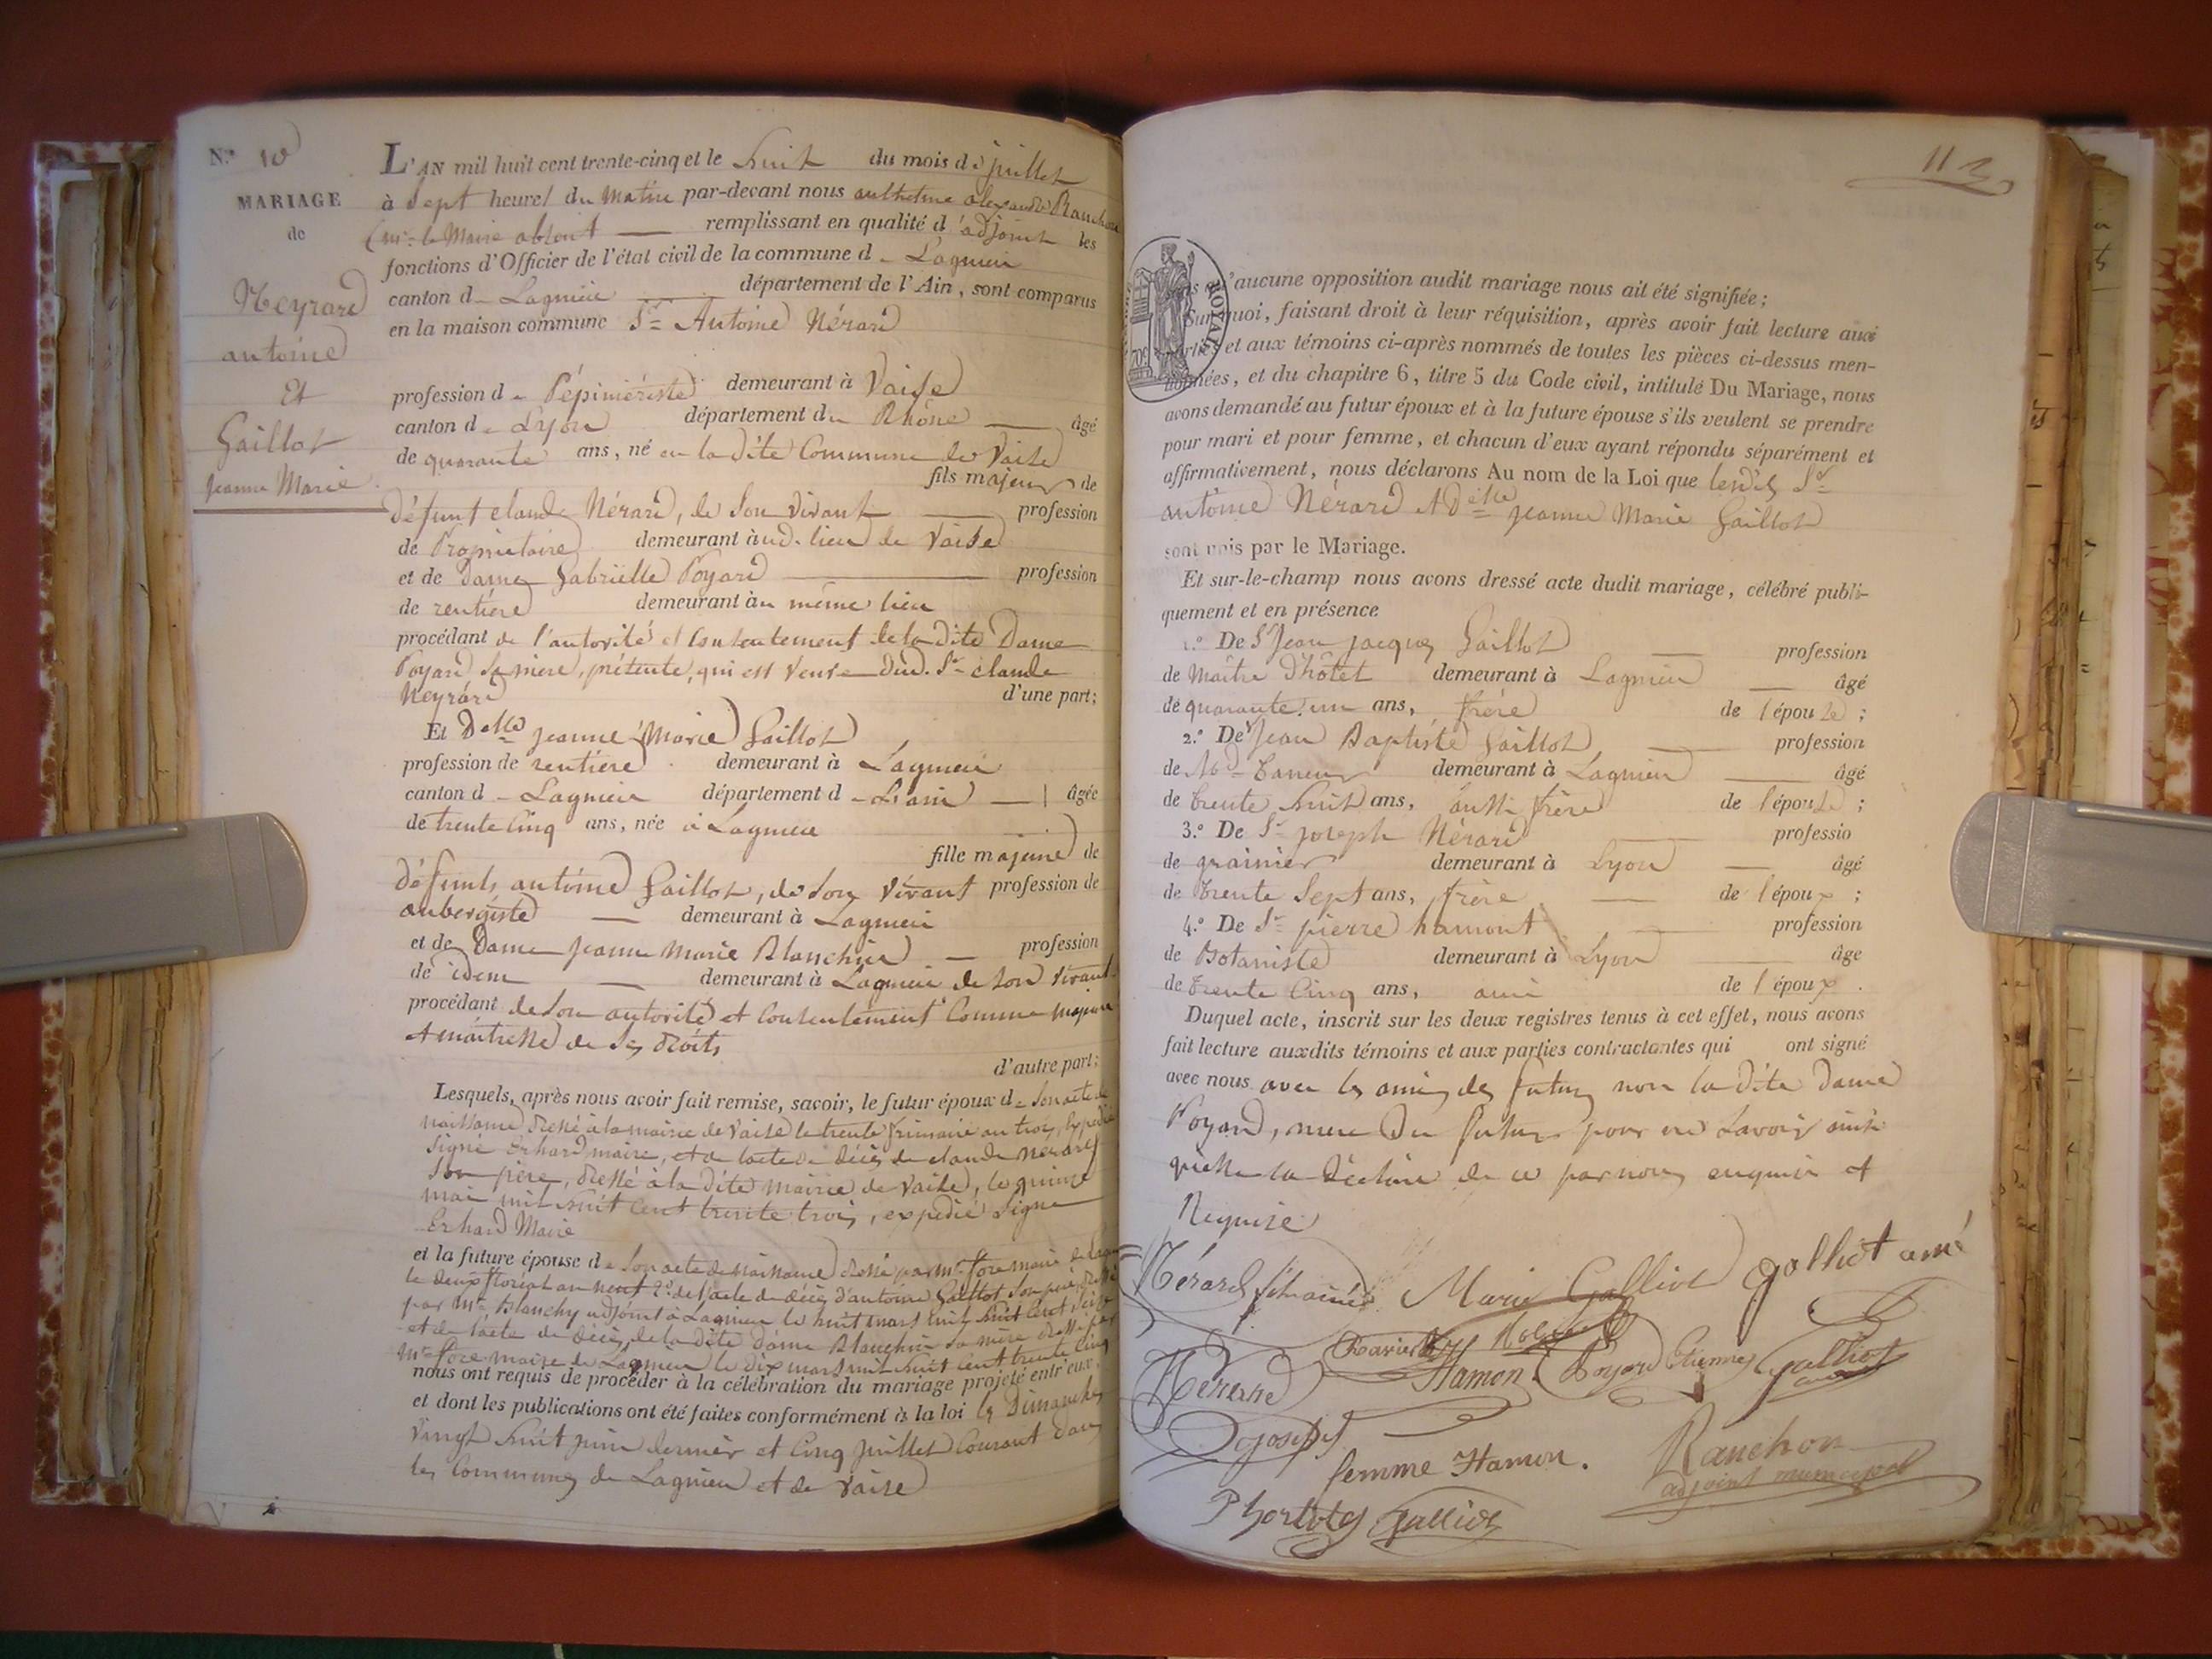 N.º 10
MARIAGE
de
Neyrard
antoine
Et
Gaillot
Jeanne Marie
L'AN mil huit cent trente-cinq et le huit du mois de juillet
à Sept heures du matin par-devant nous anthelme alexandre Ranchon
(mr. le Maire absent remplissant en qualité d'adjoint les
fonctions d'Officier de l'état civil de la commune d Lagnieu
canton d Lagnieu département de l'Ain, sont comparus
en la maison commune Sr Antoine Nérard
profession d Pépiniériste demeurant à Vaise
canton d Lyon département du Rhône âgé
de quarante ans, né en la dite Commune de Vaise
fils majeur de
défunt claude Nérard, de son vivant profession
de Propriétaire demeurant aud. lieu de Vaise
et de Dame Gabrielle Poyard profession
de rentière demeurant au même lieu
procédant de l'autorité et consentement de la dite Dame
Poyard sa mère, présente, qui est veuve dud. Sr claude
Neyrard d'une part;
Et Delle jeanne Marie Gaillot
profession de rentière demeurant à Lagnieu
canton d Lagnieu département d L'ain âgée
de trente cinq ans, née à Lagnieu
fille majeure de
défunts antoine Gaillot, de son vivant profession de
aubergiste demeurant à Lagnieu
et de Dame jeanne Marie Blanchin profession
de idem demeurant à Lagnieu de son vivant
procédant de son autorité et consentement comme majeure
et maîtresse de ses droits
d'autre part;
Lesquels, après nous avoir fait remise, savoir, le futur époux de son acte de
naissance dressé à la mairie de Vaise le trente frimaire an trois, expédié
signé Erhard maire, et de l'acte de décès de claude nerard
Son père, dressé à la dite mairie de Vaise, le quinze
mai mil huit cent trente trois, expédié signé
Erhard Maire
et la future épouse de son acte de naissance dressé par mr. fore maire de Lagnieu
le deux floréal an neuf 2.º de l'acte de décès d'antoine Gaillot son père, dressé
par Mr Blanchy adjoint à Lagnieu le huit mars mil huit cent
et de l'acte de décès de la dite dame Blanchin sa mère dressé par
Mr fore maire de Lagnieu le dix mars mil huit cent trente cinq
nous ont requis de procéder à la célébration du mariage projeté entr'eux,
et dont les publications ont été faites conformément à la loi les Dimanches
vingt huit juin dernier et cinq juillet courant dans
les communes de Lagnieu et de Vaise
113
ROYAL
70c
'aucune opposition audit mariage nous ait été signifiée;
Sur quoi, faisant droit à leur réquisition, après avoir fait lecture aux
parties et aux témoins ci-après nommés de toutes les pièces ci-dessus men-
tionnées, et du chapitre 6, titre 5 du Code civil, intitulé Du Mariage, nous
avons demandé au futur époux et à la future épouse s'ils veulent se prendre
pour mari et pour femme, et chacun d'eux ayant répondu séparément et
affirmativement, nous déclarons Au nom de la Loi que lesdits Sr
antoine Nérard et Delle jeanne Marie Gaillot
sont unis par le Mariage.
Et sur-le-champ nous avons dressé acte dudit mariage, célébré publi-
quement et en présence
1.º De Sr Jean jacques Gaillot profession
de Maître d'hôtel demeurant à Lagnieu âgé
de quarante un ans, frère de l'épouse;
2.º De Sr Jean Baptiste Gaillot profession
de Md Taneur demeurant à Lagnieu âgé
de trente huit ans, aussi frère de l'épouse;
3.º De Sr joseph Nérard professio
de grainier demeurant à Lyon âgé
de trente Sept ans, frère de l'époux;
4.º De Sr pierre hamont profession
de Botaniste demeurant à Lyon âge
de trente cinq ans, ami de l'époux.
Duquel acte, inscrit sur les deux registres tenus à cet effet, nous avons
fait lecture auxdits témoins et aux parties contractantes qui ont signé
avec nous avec les amis des futurs non la dite dame
Poyard, mère du futur pour ne savoir ainsi
qu'elle l'a déclaré de ce par nous enquise et
Requise
Nérard fils ainé Marie Galliot galliot ainé
Hamon. Poyard Etienne Galliot
Nérard
Joseph
femme Hamon. Ranchon
adjoint municipal
Galliot